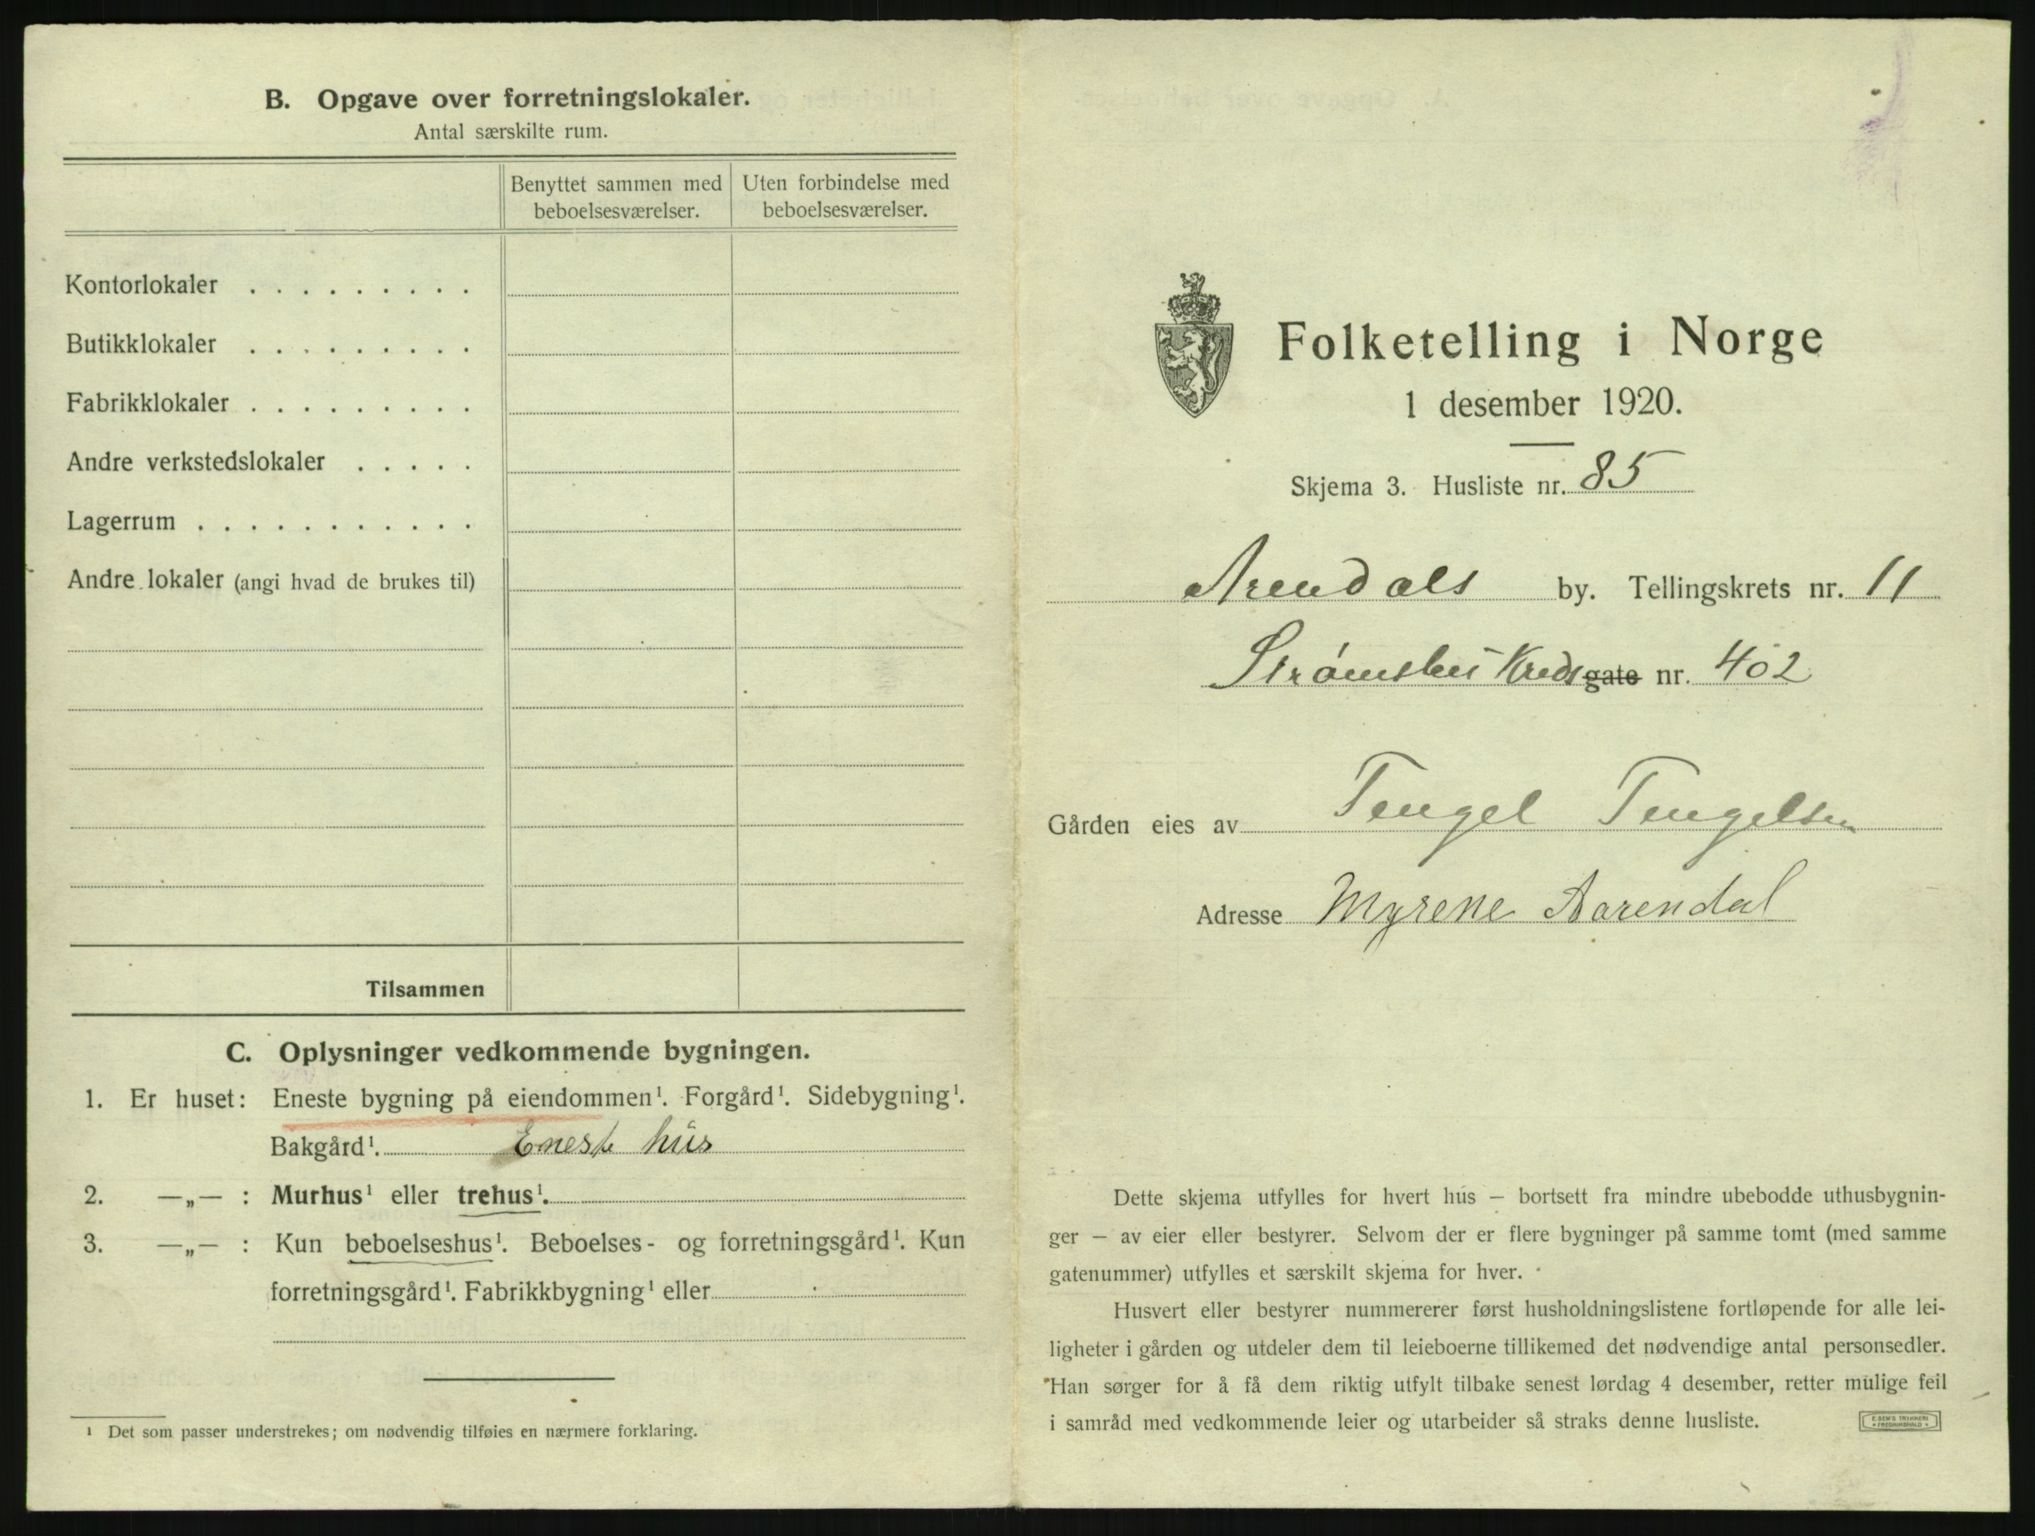 B. Opgave over forretningslokaler.
Antal særskilte rum.
Benyttet sammen med beboelsesværelser.
Uten forbindelse med beboelsesværelser.
Kontorlokaler . . . . . . . . .
Butikklokaler . . . . . . . . .
Fabrikklokaler . . . . . . . . .
Andre verkstedslokaler . . . . .
Lagerrum . . . . . . . . . . .
Andre lokaler (angi hvad de brukes til)
Tilsammen
C. Oplysninger vedkommende bygningen.
1. Er huset: Eneste bygning på eiendommen¹. Forgård¹. Sidebygning¹.
Bakgård¹. Eneste hus
2. —„— : Murhus¹ eller trehus¹.
3. —„— : Kun beboelseshus¹. Beboelses- og forretningsgård¹. Kun
forretningsgård¹. Fabrikkbygning¹ eller
¹ Det som passer understrekes; om nødvendig tilføies en nærmere forklaring.
Folketelling i Norge
1 desember 1920.
Skjema 3. Husliste nr. 85
Arendals by. Tellingskrets nr. 11
Strømsbu Kreds gate nr. 402
Gården eies av Tengel Tengelsen
Adresse Myrene Aarendal
Dette skjema utfylles for hvert hus — bortsett fra mindre ubebodde uthusbygnin-
ger — av eier eller bestyrer. Selvom der er flere bygninger på samme tomt (med samme
gatenummer) utfylles et særskilt skjema for hver.
Husvert eller bestyrer nummererer først husholdningslistene fortløpende for alle lei-
ligheter i gården og utdeler dem til leieboerne tillikemed det nødvendige antal personsedler.
Han sørger for å få dem riktig utfylt tilbake senest lørdag 4 desember, retter mulige feil
i samråd med vedkommende leier og utarbeider så straks denne husliste.
E. SEM'S TRYKKERI
FREDRIKSHALD